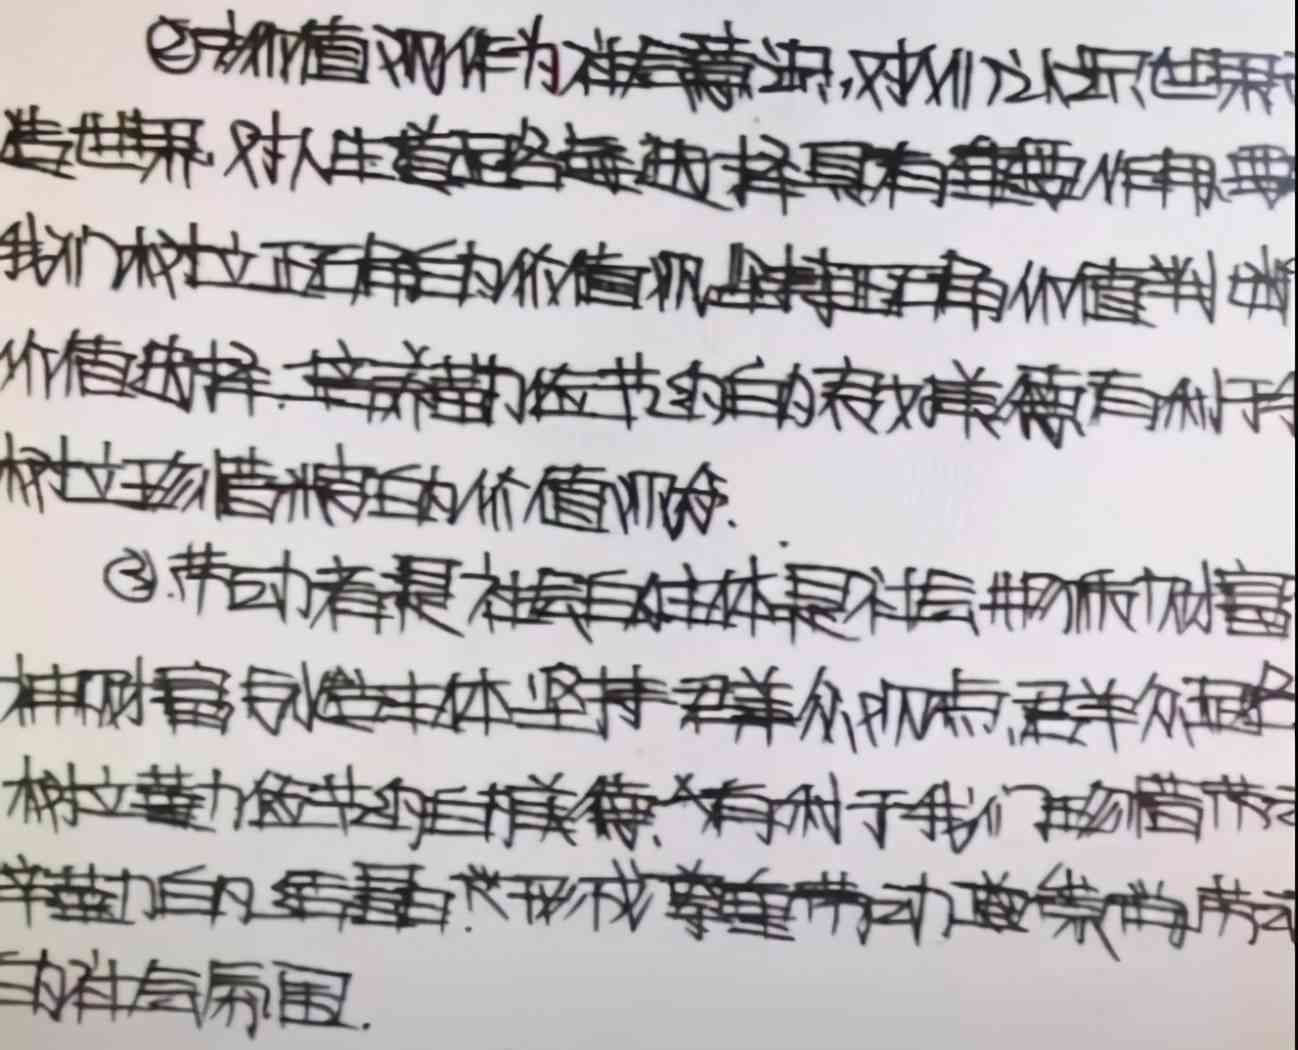 ②价值观作为社会意识,对人们认识世界
造世界,对人生道路的选择具有重要作用,要
我们树立正确的价值观,坚持正确价值判断
价值选择.培养勤俭节约的传统美德有利于
树立珍惜粮食的价值观念.
③.劳动者是社会的主体,是社会物质财富
神财富的创造主体,坚持群众观点,群众路
树立勤俭节约的美德,有利于我们珍惜劳动
辛勤的结晶,形成尊重劳动尊崇劳动
的社会氛围.